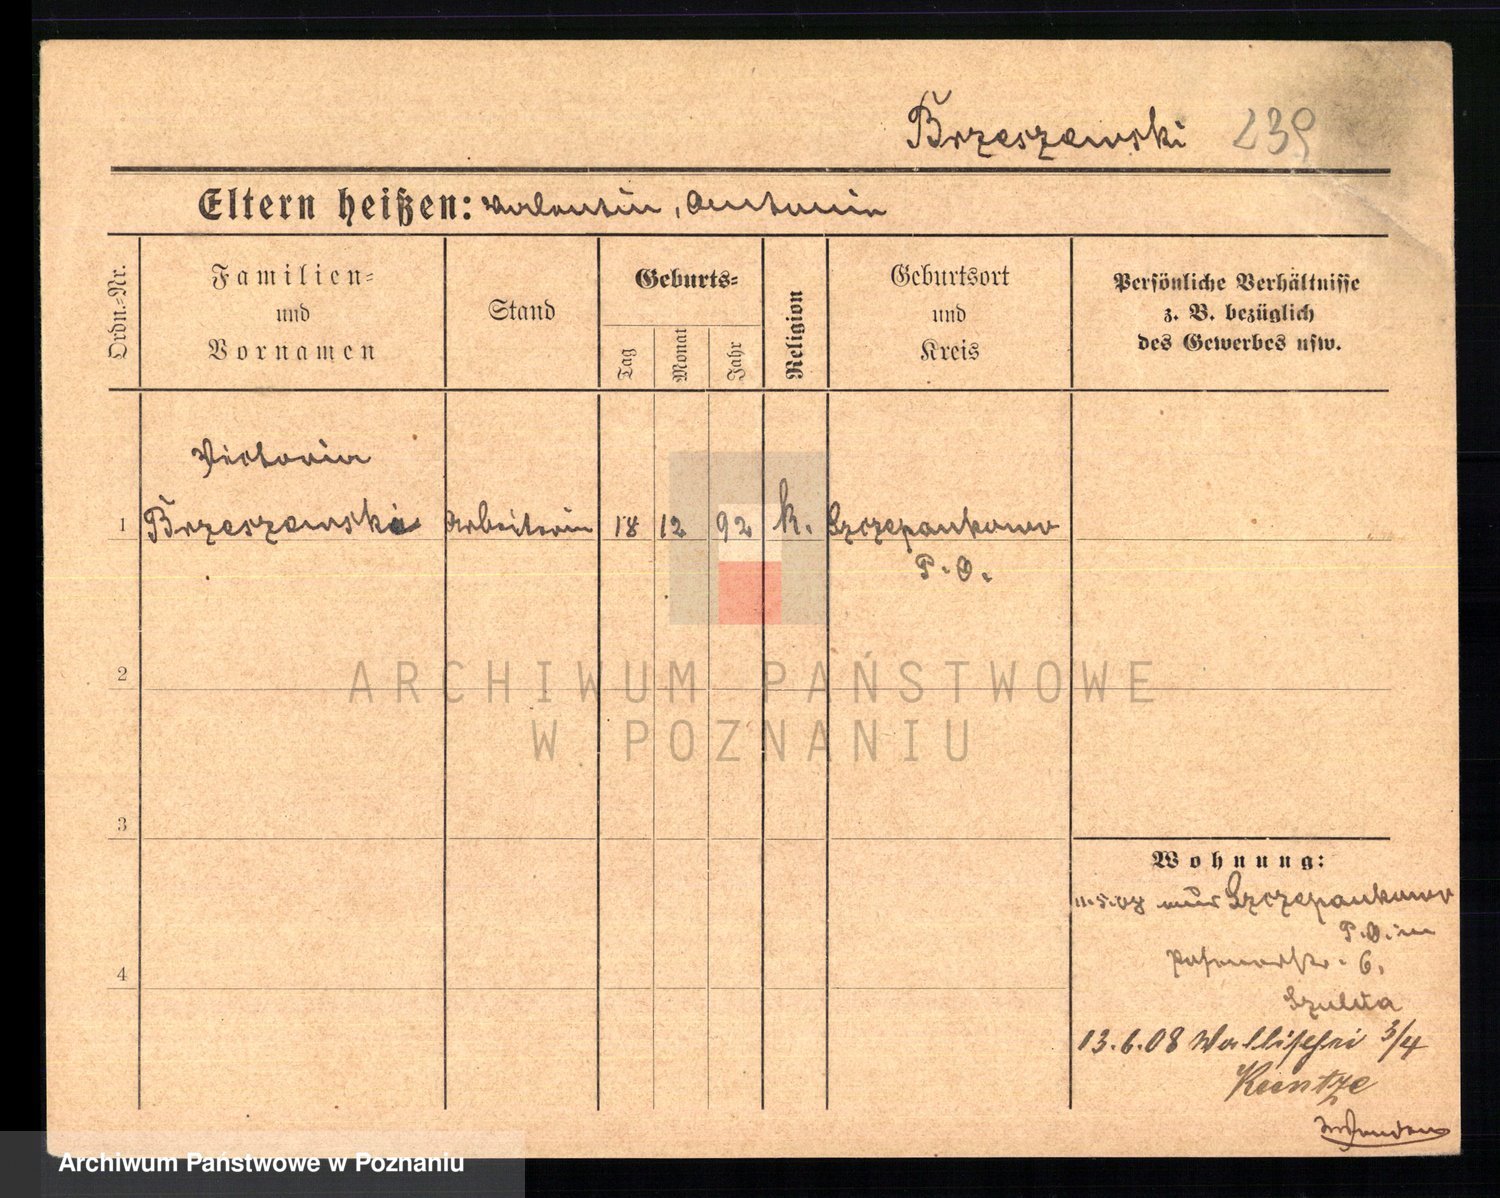 Brzeszewski 239
Eltern heißen: Valentin, Antonie
Ordn.-Nr.
Familien- und Vornamen
Stand
Geburts-
Tag
Monat
Jahr
Religion
Geburtsort und Kreis
Persönliche Verhältnisse
z. B. bezüglich
des Gewerbes usw.
Victoria
1 Brzeszewski Arbeiterin 18 12 92 k. Szczepankowo
P. O.
2
ARCHIWUM PAŃSTWOWE
W POZNANIU
3
Wohnung:
11.5.08 aus Szczepankowo
P. O. in
Posenerstr. 6.
Szulta
4
13.6.08 Wallischei 3/4
Kuntze
Archiwum Państwowe w Poznaniu